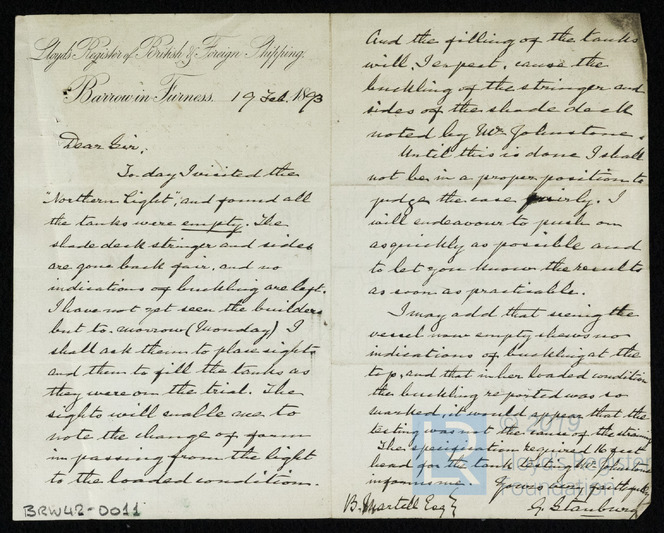 Lloyd's Register of British & Foreign Shipping.
Barrow in Furness. 19 Feb. 1893
Dear Sir,
To day I visited the
"Northern Light", and found all
the tanks were empty. The
shade deck stringer and sides
are gone back fair, and no
indications of buckling are left.
I have not yet seen the builders
but to-morrow (Monday) I
shall ask them to place sights
and them to fill the tanks as
they were on the trial. The
sights will enable me to
note the change of form
in passing from the light
to the loaded condition.
BRW42-0011
And the filling of the tanks
will, I expect, cause the
buckling of the stringer and
sides of the shade deck
noted by Mr Johnstone.
Until this is done I shall
not be in a proper position to
judge the case fairly. I
will endeavour to push on
as quickly as possible and
to let you know the results
as soon as practicable.
I may add that seeing the
vessel now empty shews no
indications of buckling at the
top, and that in her loaded condition
the buckling reported was so
marked, it would appear that the
testing was not the cause of the straining
The specification required 16 feet
head for the tank testing Mr
informs me. Yours very faithfully
B. Martell Esq
G. Stanbury
© 2019
Lloyd's Register
Foundation
LR